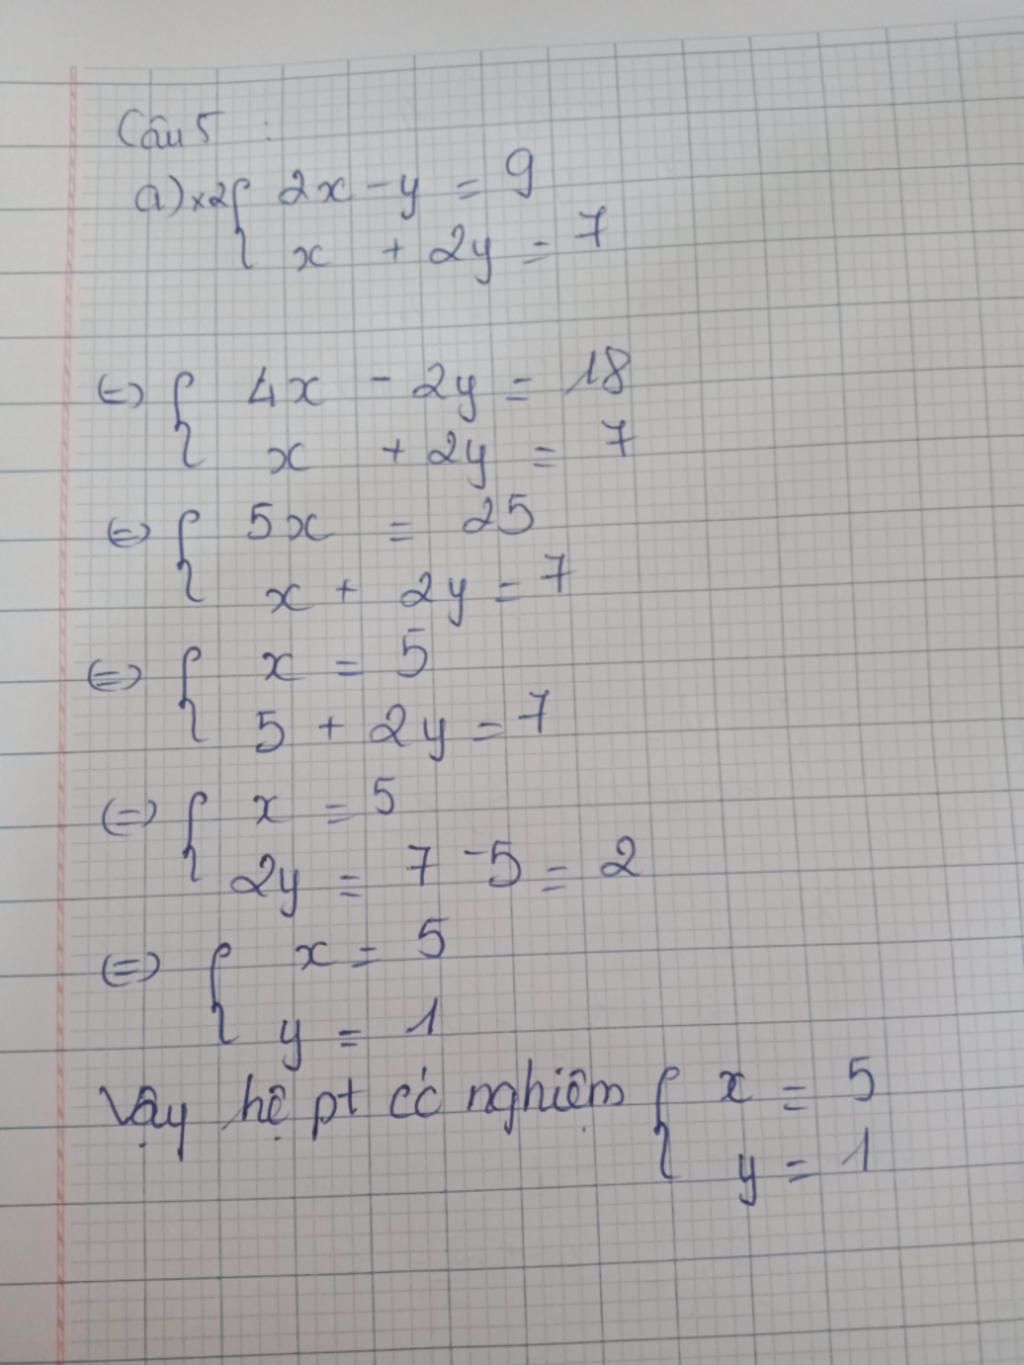 Câu 5 :
a) x2 { 2x - y = 9
x + 2y = 7
(=) { 4x - 2y = 18
x + 2y = 7
(=) { 5x = 25
x + 2y = 7
(=) { x = 5
5 + 2y = 7
(=) { x = 5
2y = 7 - 5 = 2
(=) { x = 5
y = 1
Vậy hệ pt có nghiệm { x = 5
y = 1